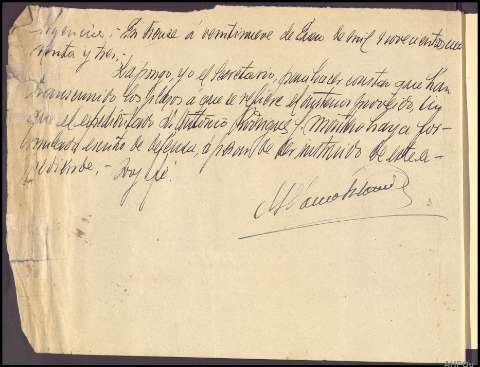 Diligencia.- En Orense á veintinueve de Enero de mil novecientos cua
renta y tres.-
La pongo, yo el Secretario, para hacer constar que han
transcurrido los plazos a que se refiere el anterior proveido, sin
que el expedientado D. Antonio Rodriguez y Montho haya for-
mulado escrito de defensa, a pesar de ser instruido de este
derecho.- Doy fé.